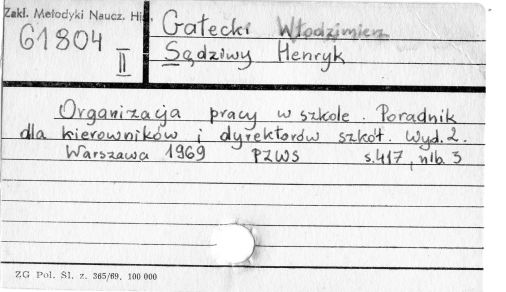 Zakł. Metodyki Naucz. His.
61804
II
Gałecki Włodzimierz
Sędziwy Henryk
Organizacja pracy w szkole. Poradnik
dla kierowników i dyrektorów szkół. Wyd. 2.
Warszawa 1969 PZWS s. 417, nlb. 3
ZG Pol. Śl. z. 365/69. 100 000